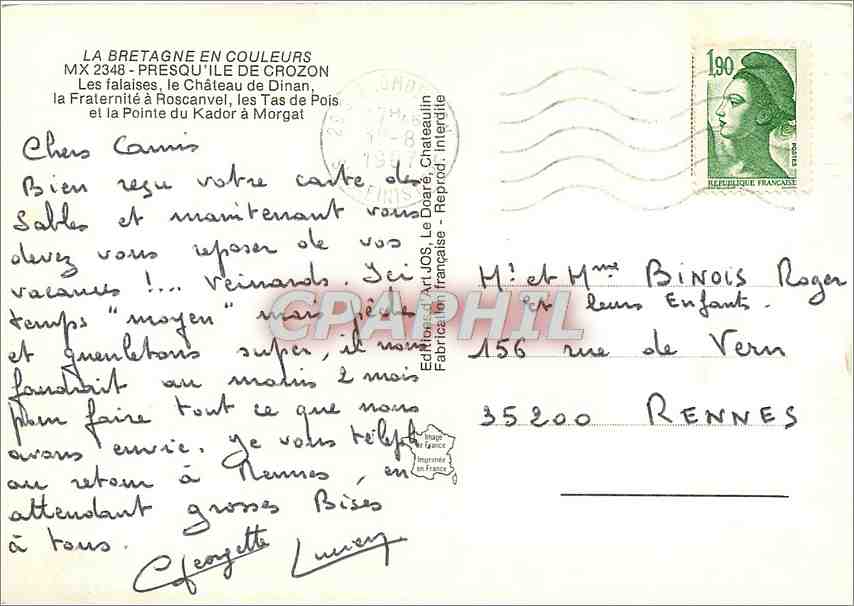 LA BRETAGNE EN COULEURS
MX 2348 - PRESQU'ILE DE CROZON
Les falaises, le Château de Dinan,
la Fraternité à Roscanvel, les Tas de Pois
et la Pointe du Kador à Morgat
Chers Camis
Bien reçu votre carte des
Sables et maintenant vous
devez vous reposer de vos
vacances !... Veinards. Ici
temps "moyen" mais pêches
et gueuletons super, il nous
faudrait au moins 2 mois
pour faire tout ce que nous
avons envie. Je vous téléph
au retour à Rennes, en
attendant grosses Bises
à tous.
Georgette Lucien
Editions d'Art JOS, Le Doaré, Chateaulin
Fabrication française - Reprod. Interdite
Image
de France
Imprimée
en France
1987
1,90
POSTES
REPUBLIQUE FRANÇAISE
Mr et Mme BINOIS Roger
et leurs Enfants.
156 rue de Vern
35200 RENNES
CPAPHIL